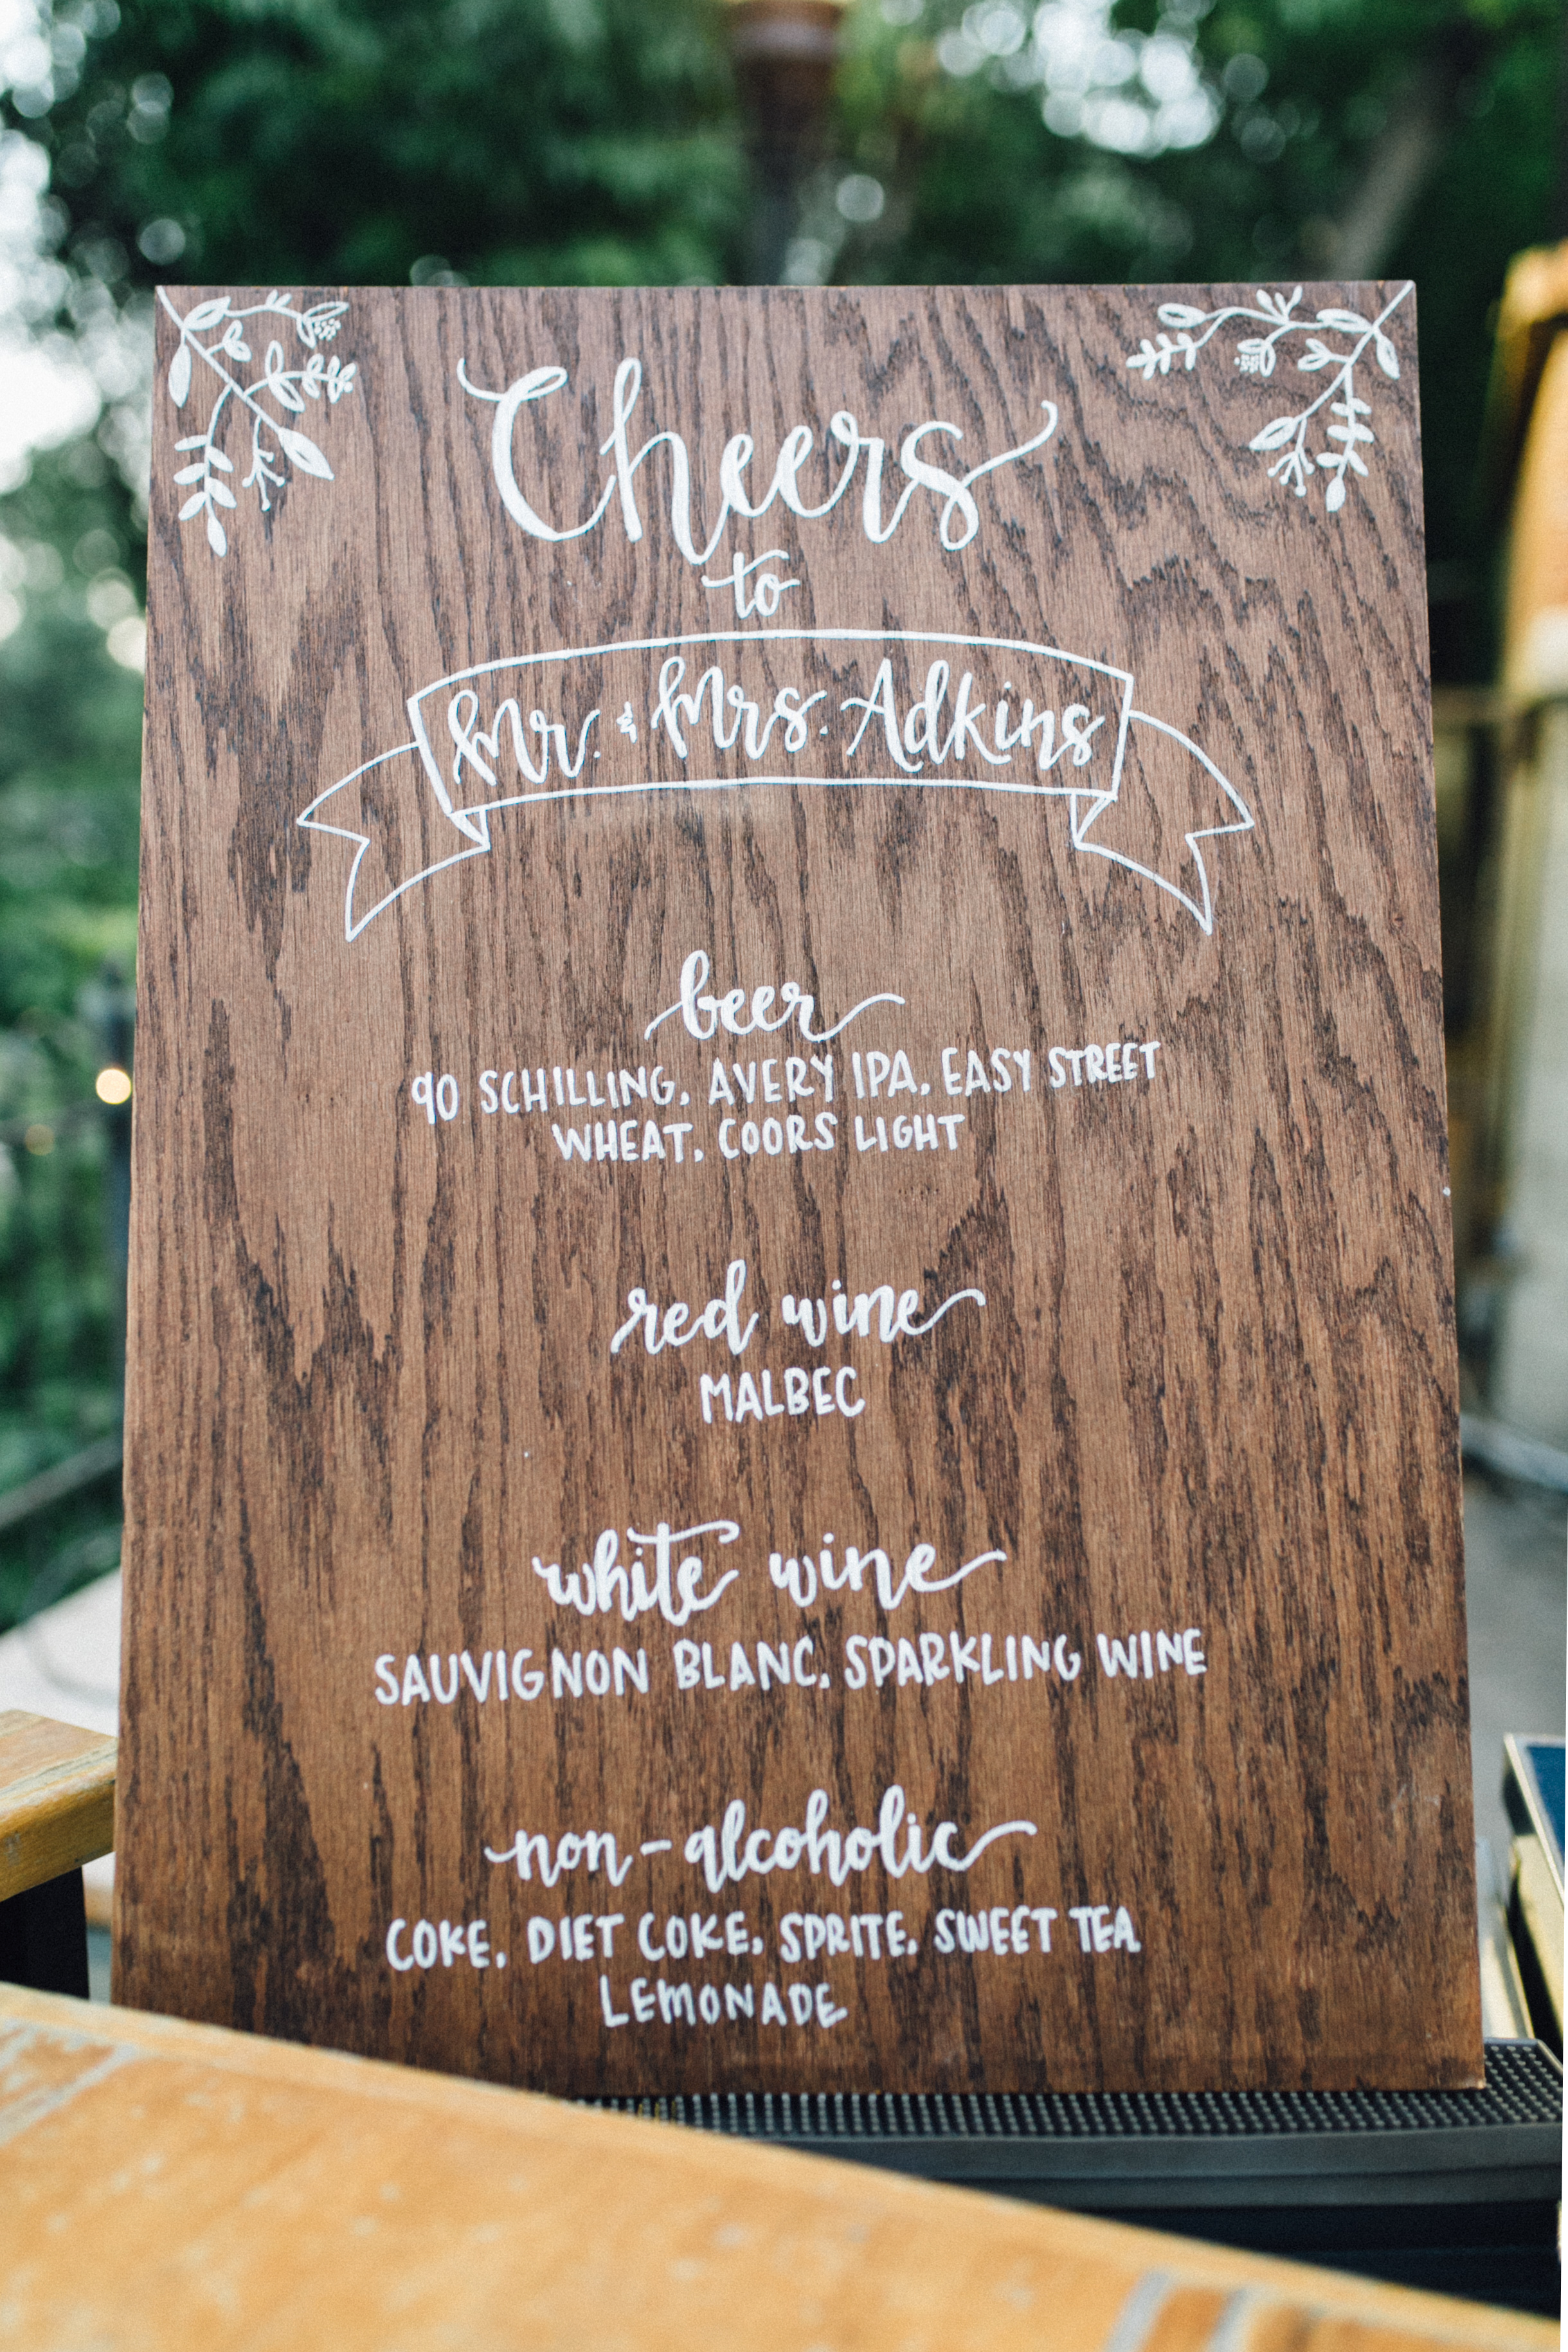 Cheers
to
Mr. & Mrs. Adkins
beer
90 SCHILLING, AVERY IPA, EASY STREET
WHEAT, COORS LIGHT
red wine
MALBEC
white wine
SAUVIGNON BLANC, SPARKLING WINE
non-alcoholic
COKE, DIET COKE, SPRITE, SWEET TEA
LEMONADE